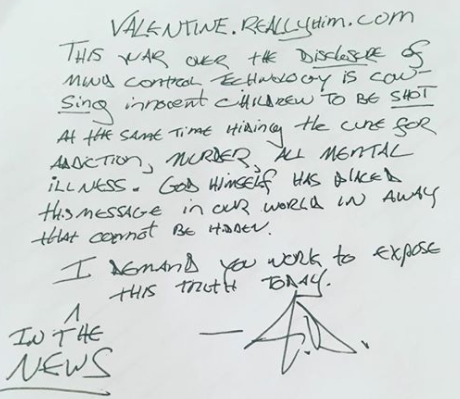 VALENTINE.REALLYHIM.COM
THIS WAR OVER THE DISCLOSURE OF
MIND CONTROL TECHNOLOGY IS COW-
SING INNOCENT CHILDREN TO BE SHOT
AT THE SAME TIME HIDING THE CURE FOR
ADDICTION, MURDER, ALL MENTAL
ILLNESS. GOD HIMSELF HAS PLACED
THIS MESSAGE IN OUR WORLD IN AWAY
THAT CANNOT BE HIDDEN.
I DEMAND YOU WORK TO EXPOSE
THIS TRUTH TODAY.
IN THE
NEWS